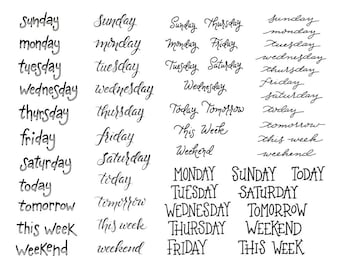 sunday
monday
tuesday
wednesday
thursday
friday
saturday
today
tomorrow
this week
weekend
sunday
monday
tuesday
wednesday
thursday
friday
saturday
today
tomorrow
this week
weekend
Sunday Thursday
Monday Friday
Tuesday Saturday
Wednesday
Today Tomorrow
This Week
Weekend
sunday
monday
tuesday
wednesday
thursday
friday
saturday
today
tomorrow
this week
weekend
MONDAY SUNDAY TODAY
TUESDAY SATURDAY
WEDNESDAY TOMORROW
THURSDAY WEEKEND
FRIDAY THIS WEEK